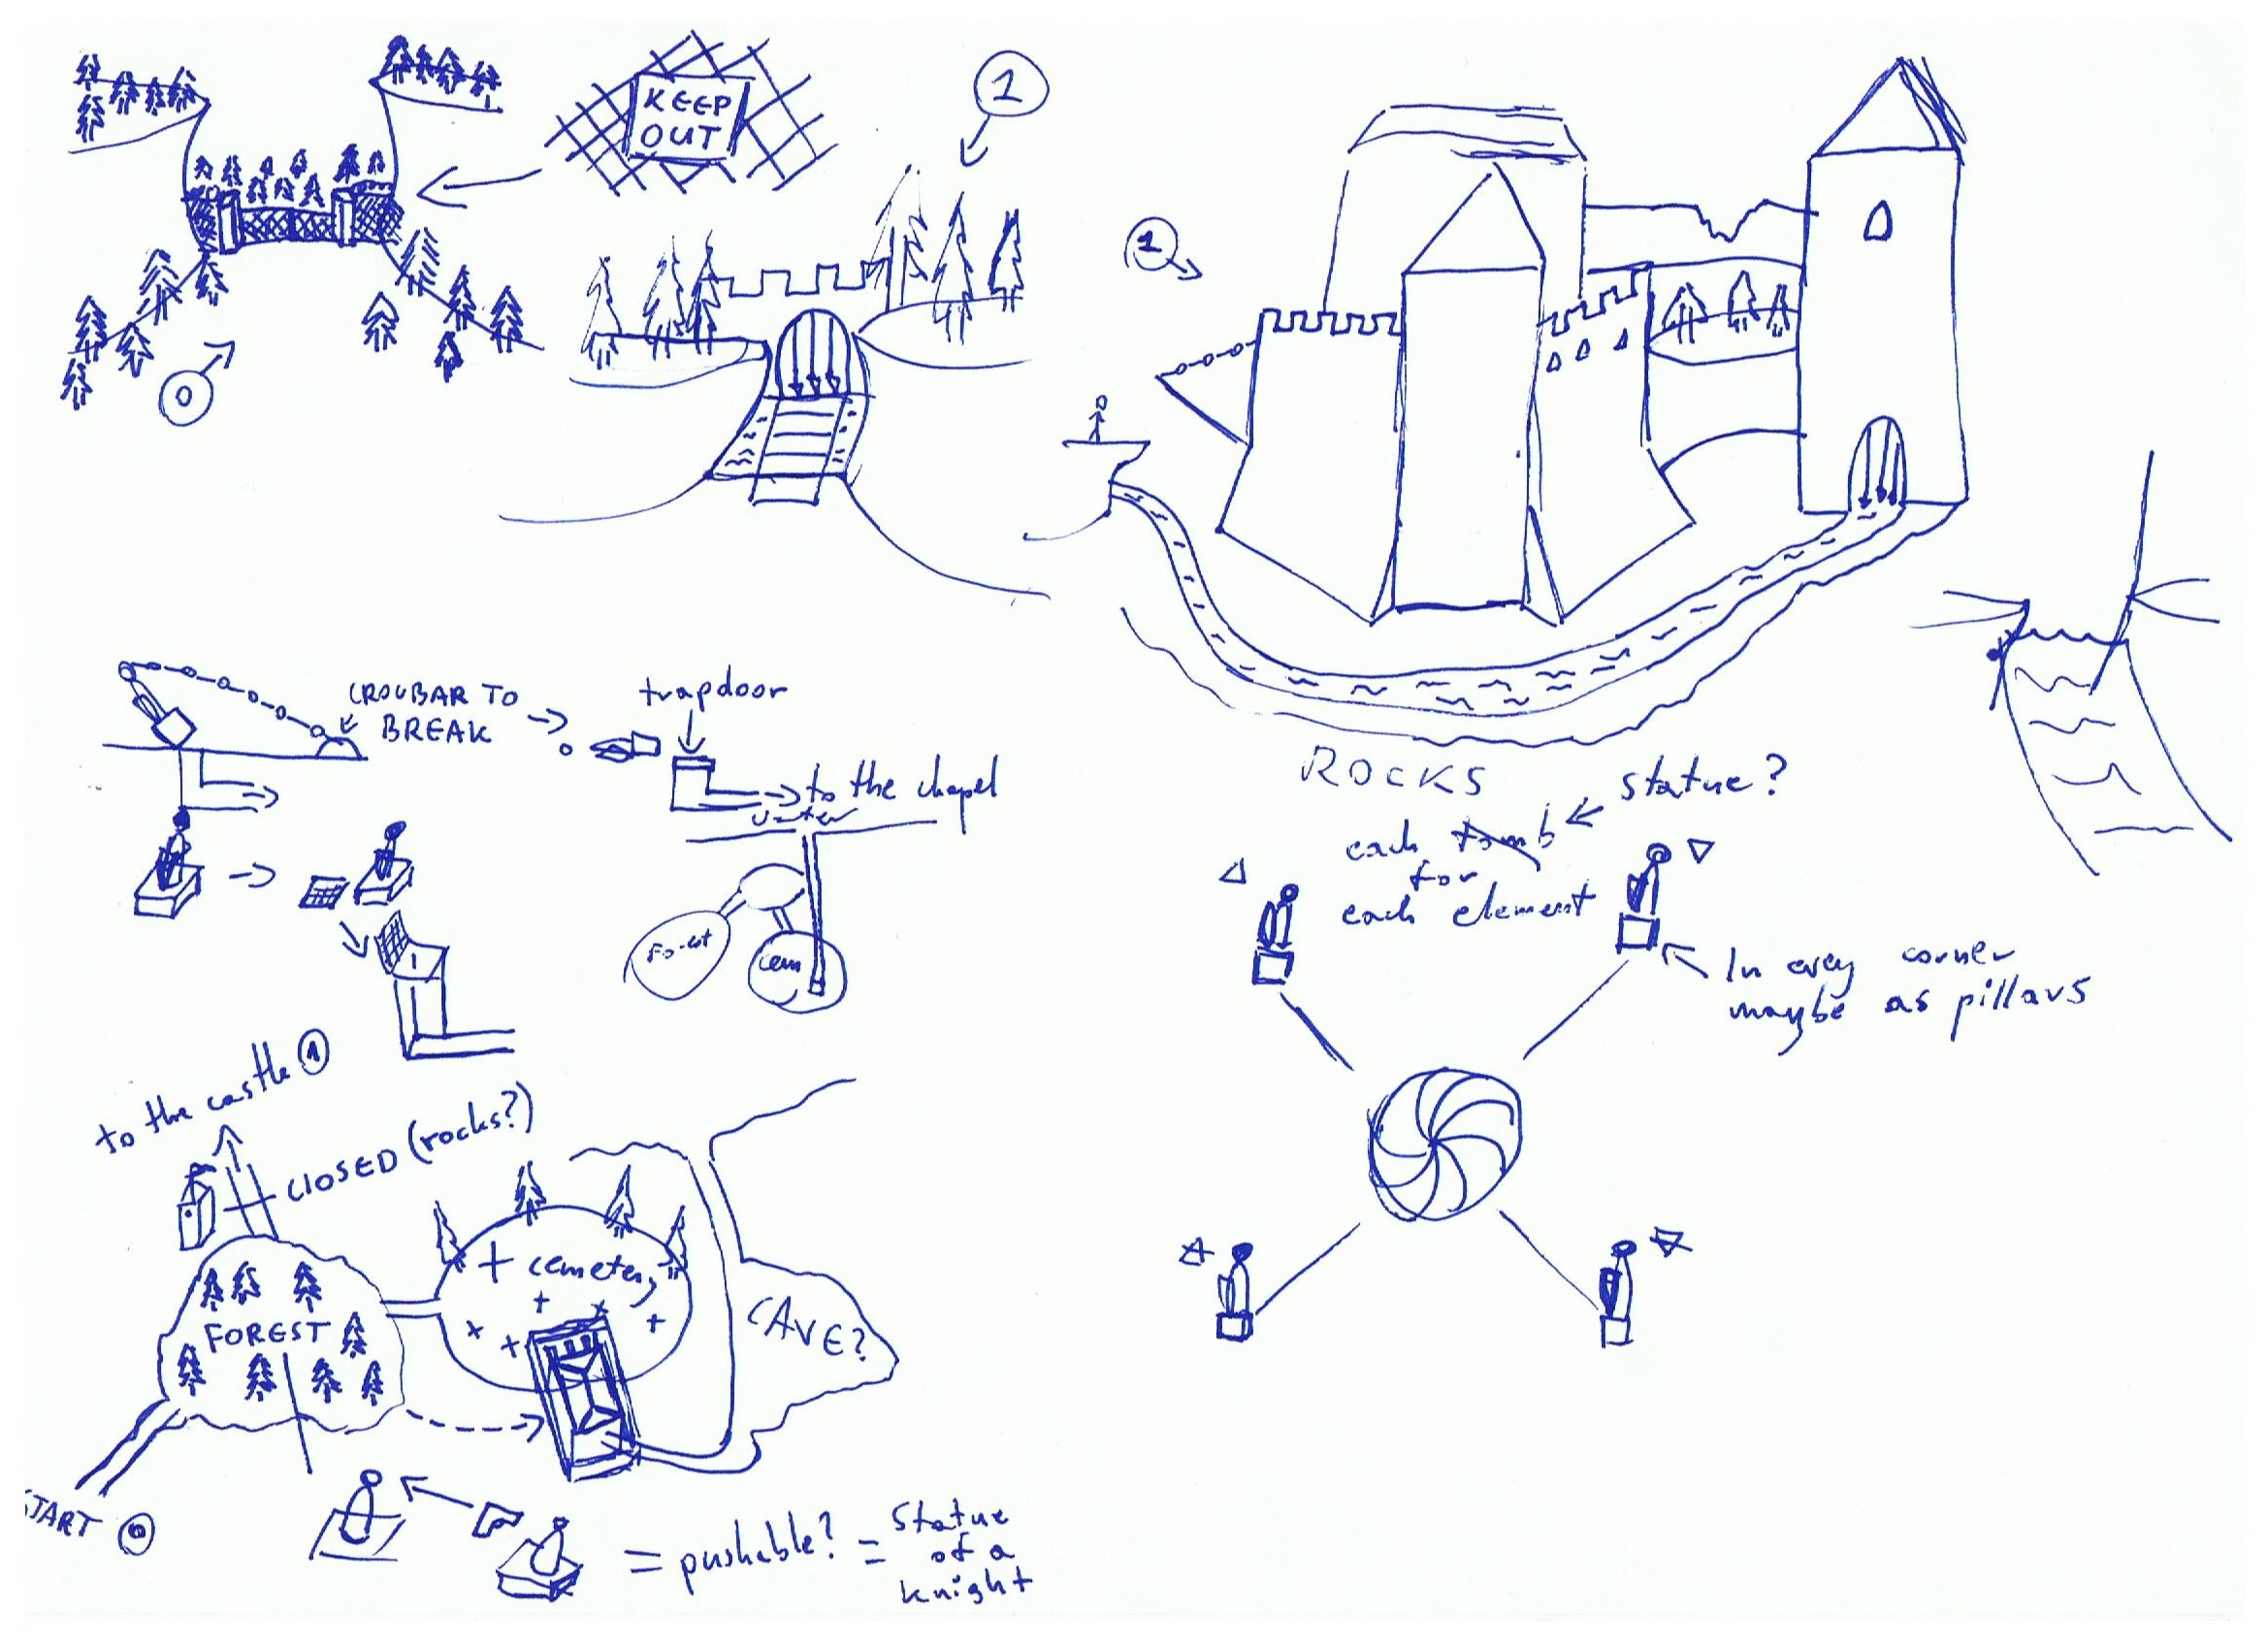 KEEP
OUT
1
1
0
CROUBAR TO
BREAK
trapdoor
to the chapel
ROCKS
statue?
each tomb
for
each element
In every corner
maybe as pillars
cem
to the castle 1
CLOSED (rocks?)
+ cemetery
FOREST
CAVE?
START 0
= pushable? = Statue
of a
knight